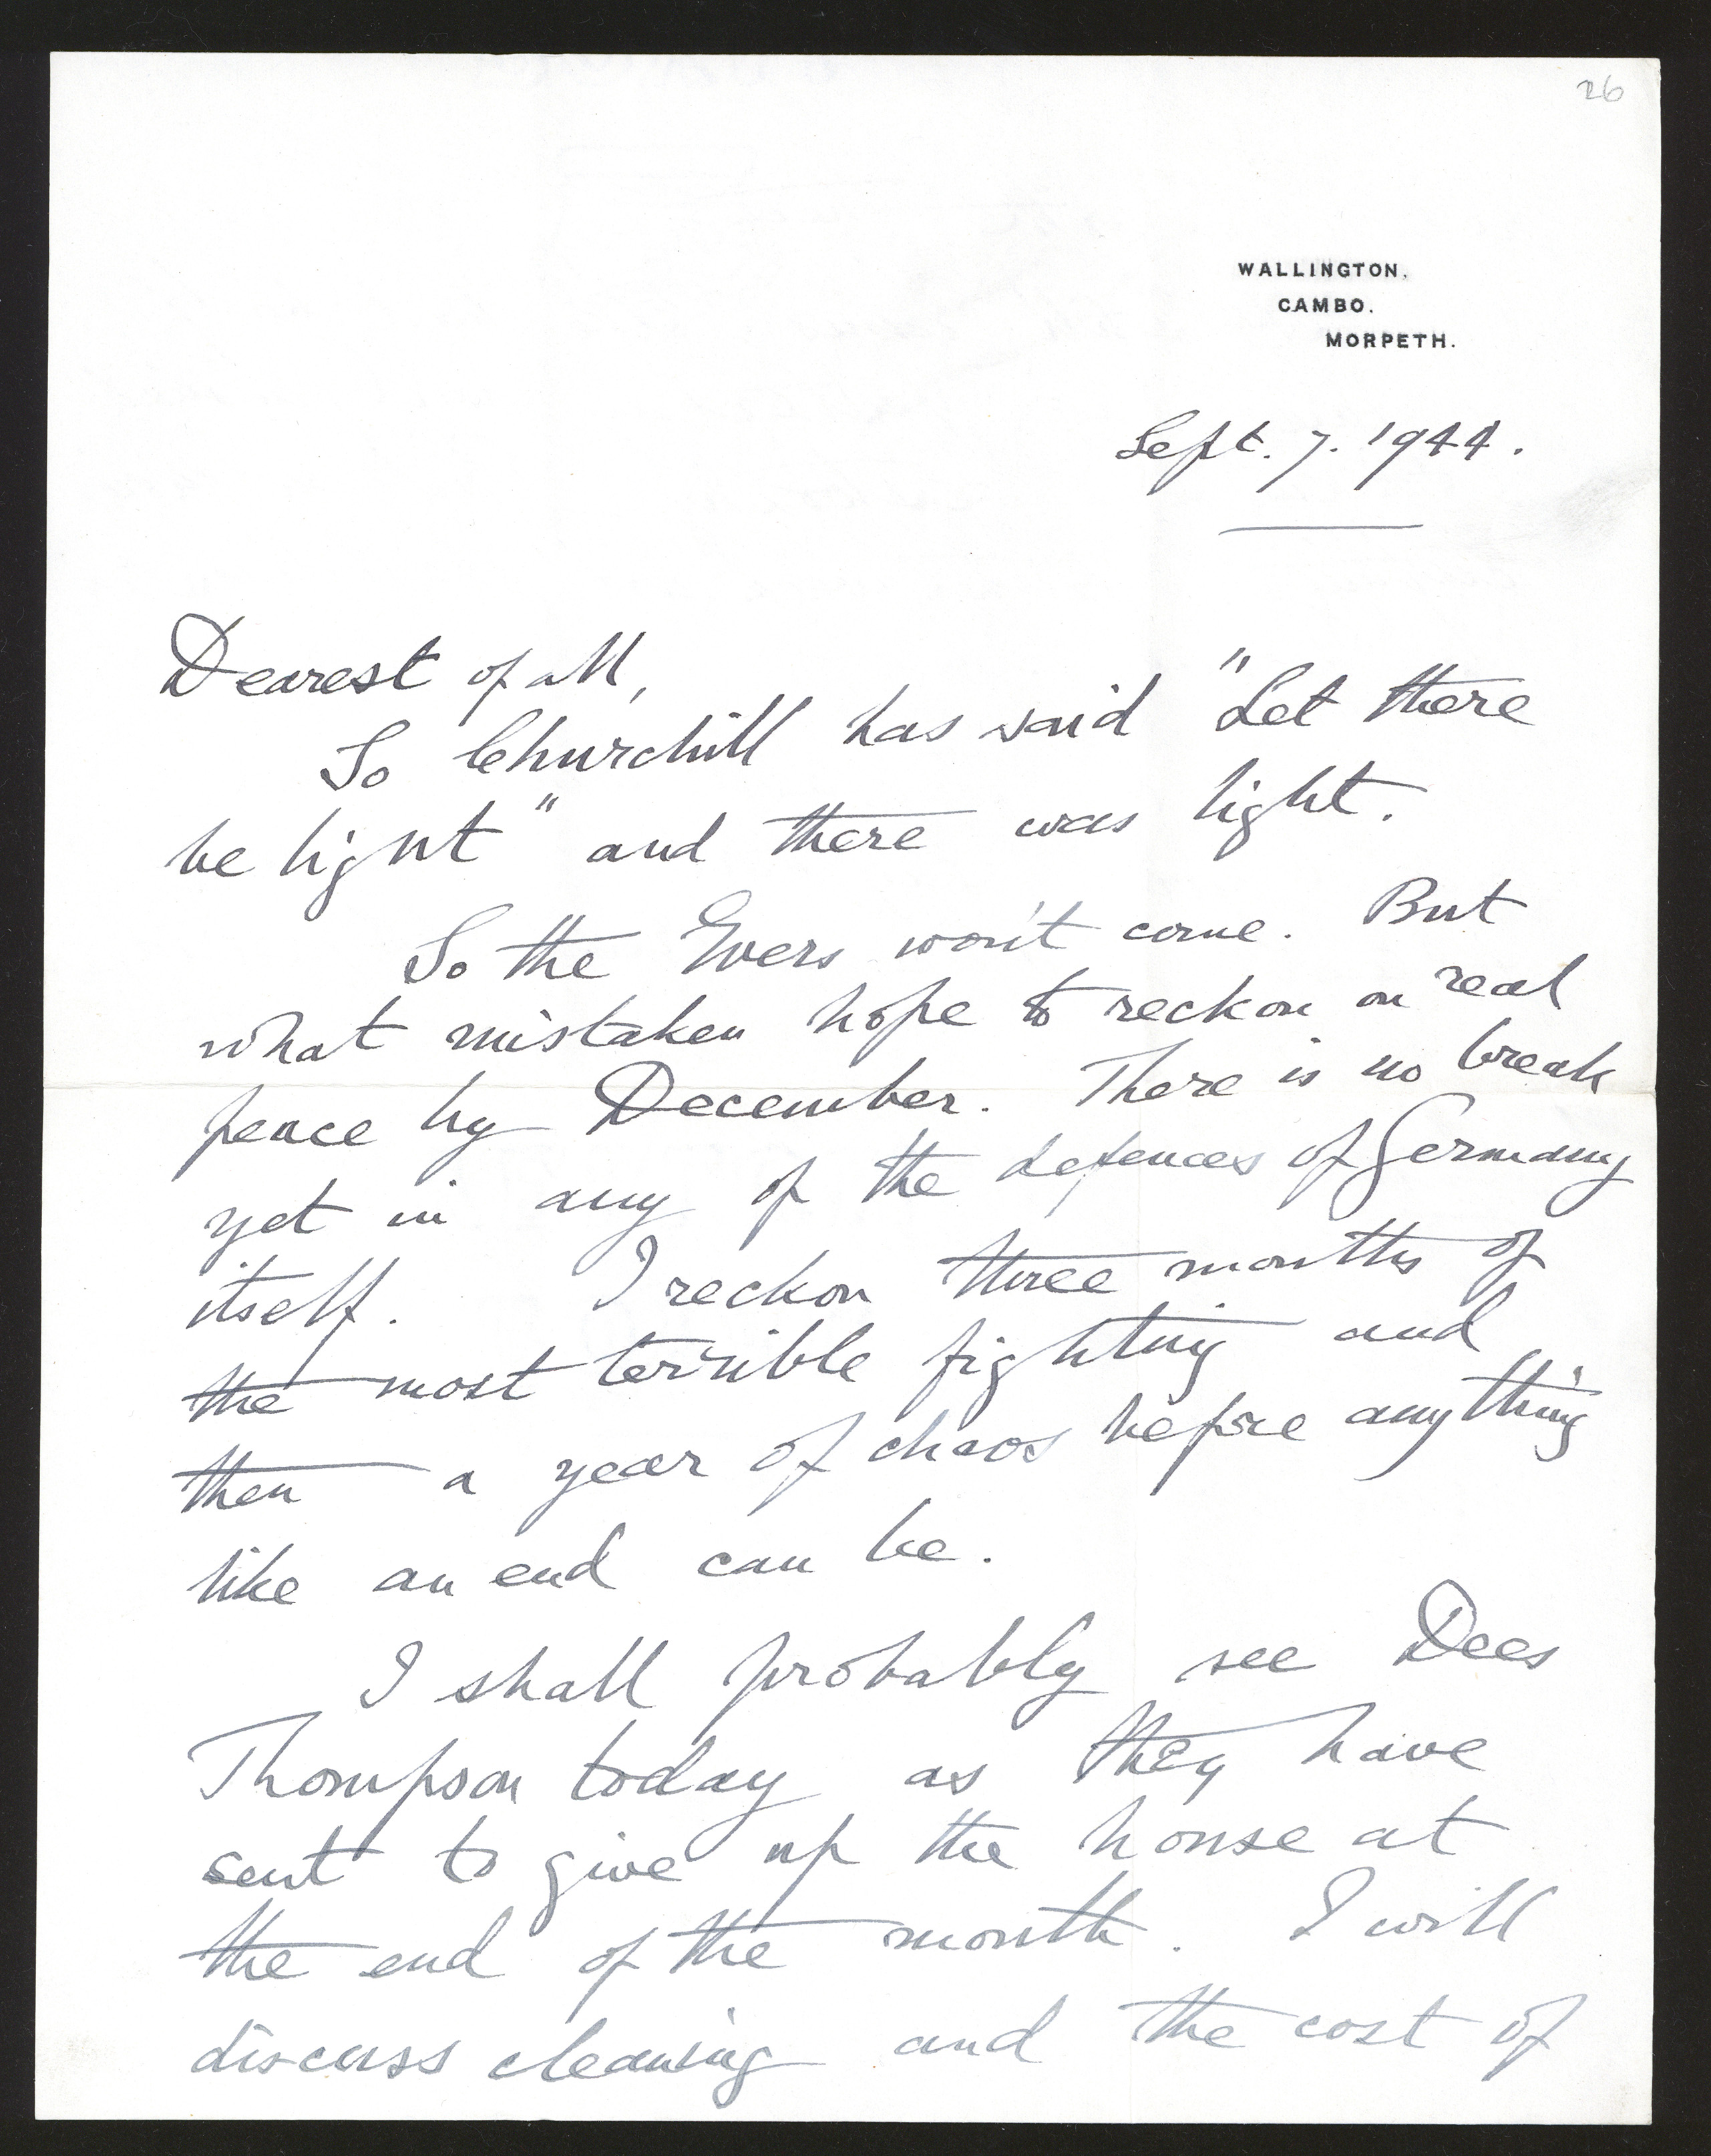 26
WALLINGTON.
CAMBO.
MORPETH.
Sept. 7. 1944.
Dearest of all,
So Churchill has said "Let there
be light" and there was light.
So the Evers won't come. But
what mistaken hope to reckon on real
peace by December. There is no break
yet in any of the defences of Germany
itself. I reckon three months of
the most terrible fighting and
then a year of chaos before anything
like an end can be.
I shall probably see Dees
Thompson today as they have
sent to give up the house at
the end of the month. I will
discuss cleaning and the cost of